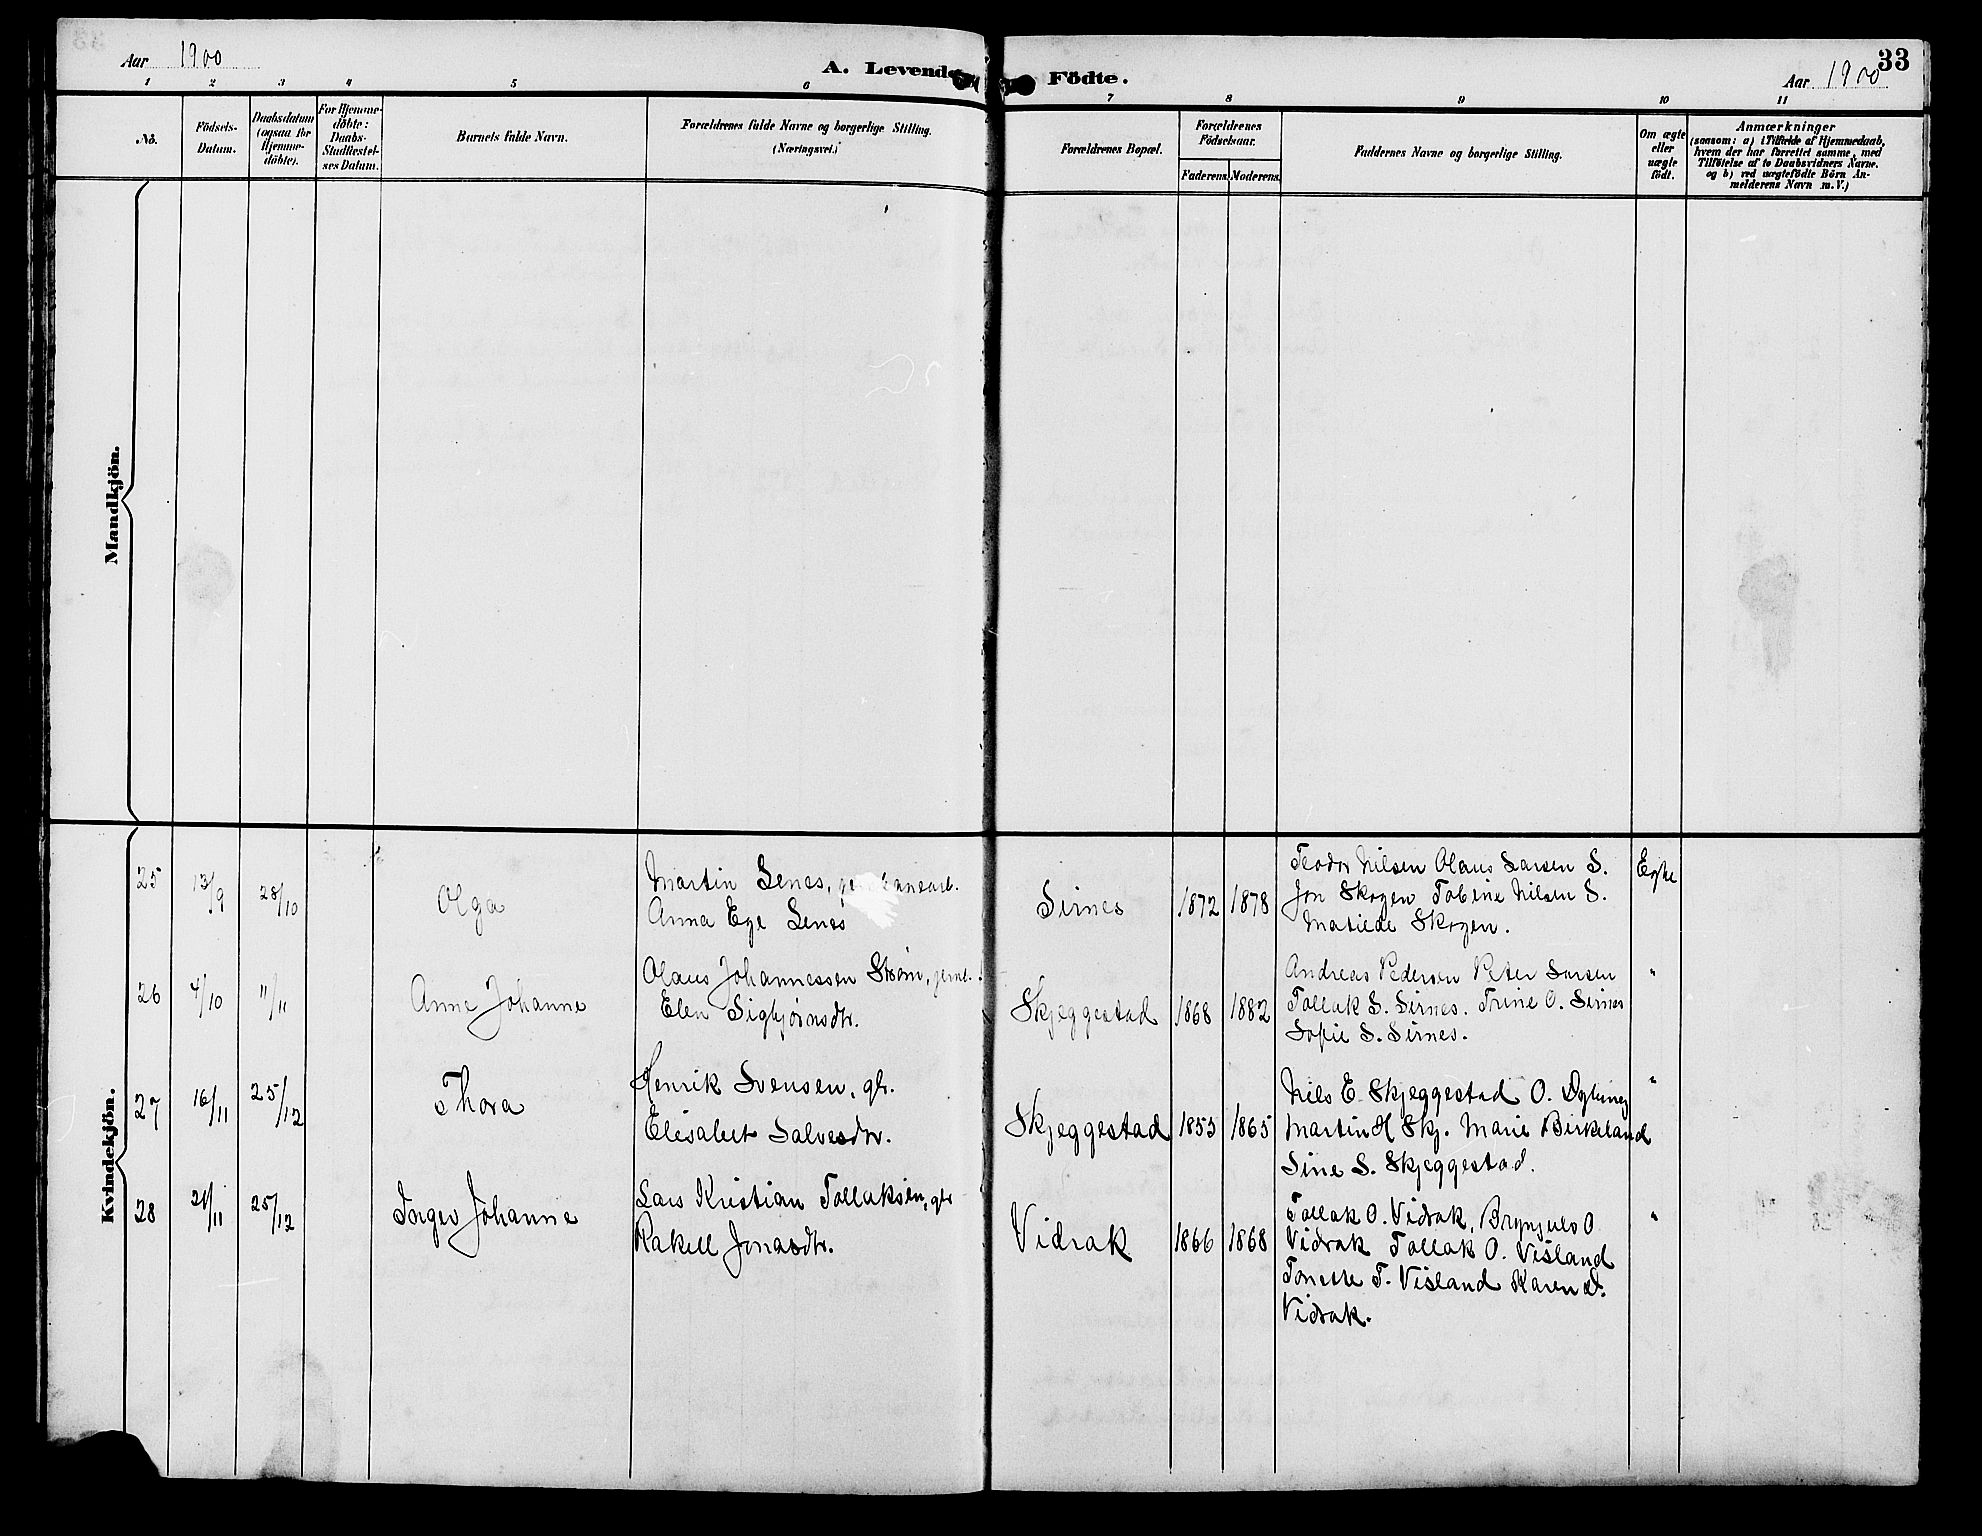 33
Aar 1900
A. Levende Födte.
Aar 1900
1 2 3 4 5 6 7 8 9 10 11
No.
Födsels-
Datum.
Daabsdatum
(ogsaa for
Hjemme-
döbte).
For Hjemme-
döbte:
Daabs-
Stadfæstel-
ses Datum.
Barnets fulde Navn.
Forældrenes fulde Navne og borgerlige Stilling.
(Næringsvei.)
Forældrenes Bopæl.
Forældrenes
Födselsaar.
Faderens. Moderens.
Faddernes Navne og borgerlige Stilling.
Om ægte
eller
uægte
födt.
Anmærkninger
(saasom: a) i Tilfælde af Hjemmedaab,
hvem der har forrettet samme, med
Tilföielse af to Daabsvidners Navne.
og b) ved uægtefödte Börn An-
melderens Navn m.V.)
Mandkjön.
Kvindekjön.
25 13/9 28/10 Olga
Martin Senes,
Anna Ege Senes
Sirnes 1872 1878
Teodor Nilsen Olaus Larsen S.
Jon Skogen Tobine Nilsen S.
Matilde Skogen.
Egte
26 4/10 11/11 Anne Johanne
Olaus Johannessen Strøm,
Elen Sigbjørnsdtr.
Skjeggestad 1868 1882
Andreas Pedersen Peter Larsen
Tollak S. Sirnes. Trine O. Sirnes
Sofie S. Sirnes.
"
27 16/11 25/12 Thora
Henrik Svensen, gbr.
Elisabet Salvesdtr.
Skjeggestad 1855 1865
Nils E. Skjeggestad O.
Martin H Skj. Marie Birkeland
Sine S. Skjeggestad.
"
28 21/11 25/12 Inger Johanne
Lars Kristian Tollaksen, gbr
Rakell Jonasdtr.
Vidrak 1866 1868
Tollak O. Vidrak, Brynjuls O
Vidrak Tollak O. Visland
Tonette T. Visland Karen
Vidrak.
"